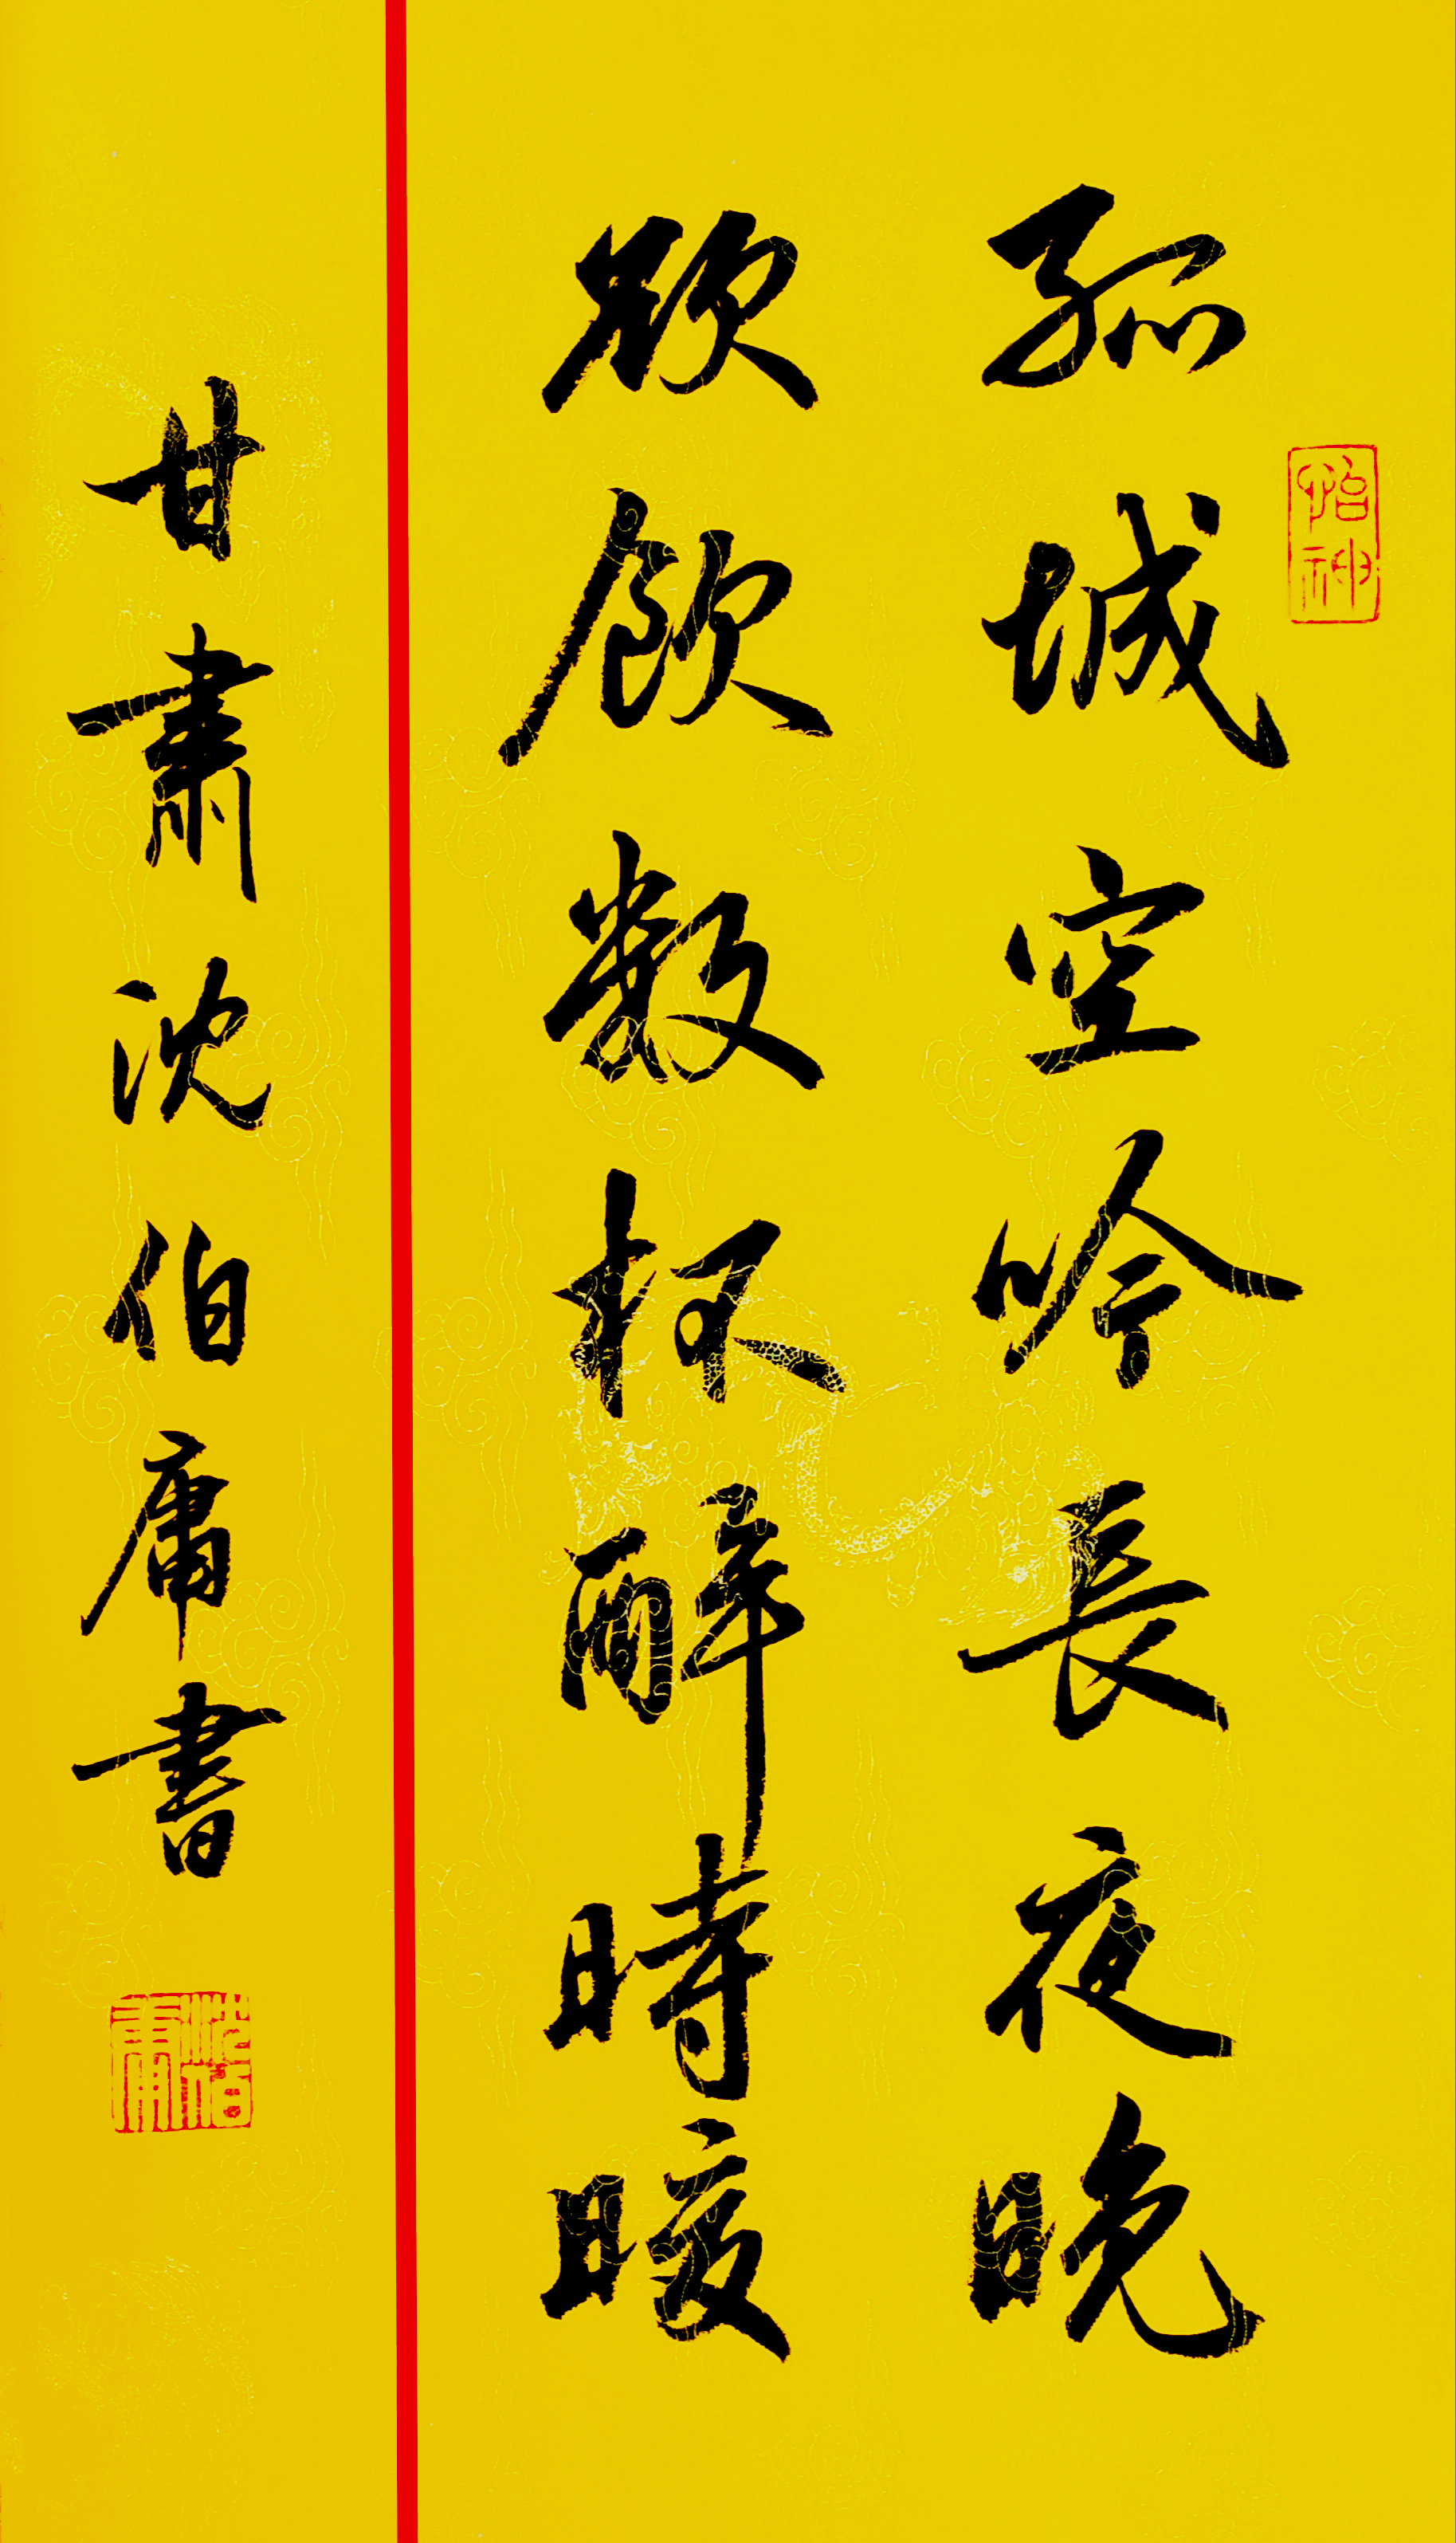 孤城空吟長夜晚
欲飲數杯醉時暖
甘肅沈伯庸書
怡神
沈伯庸